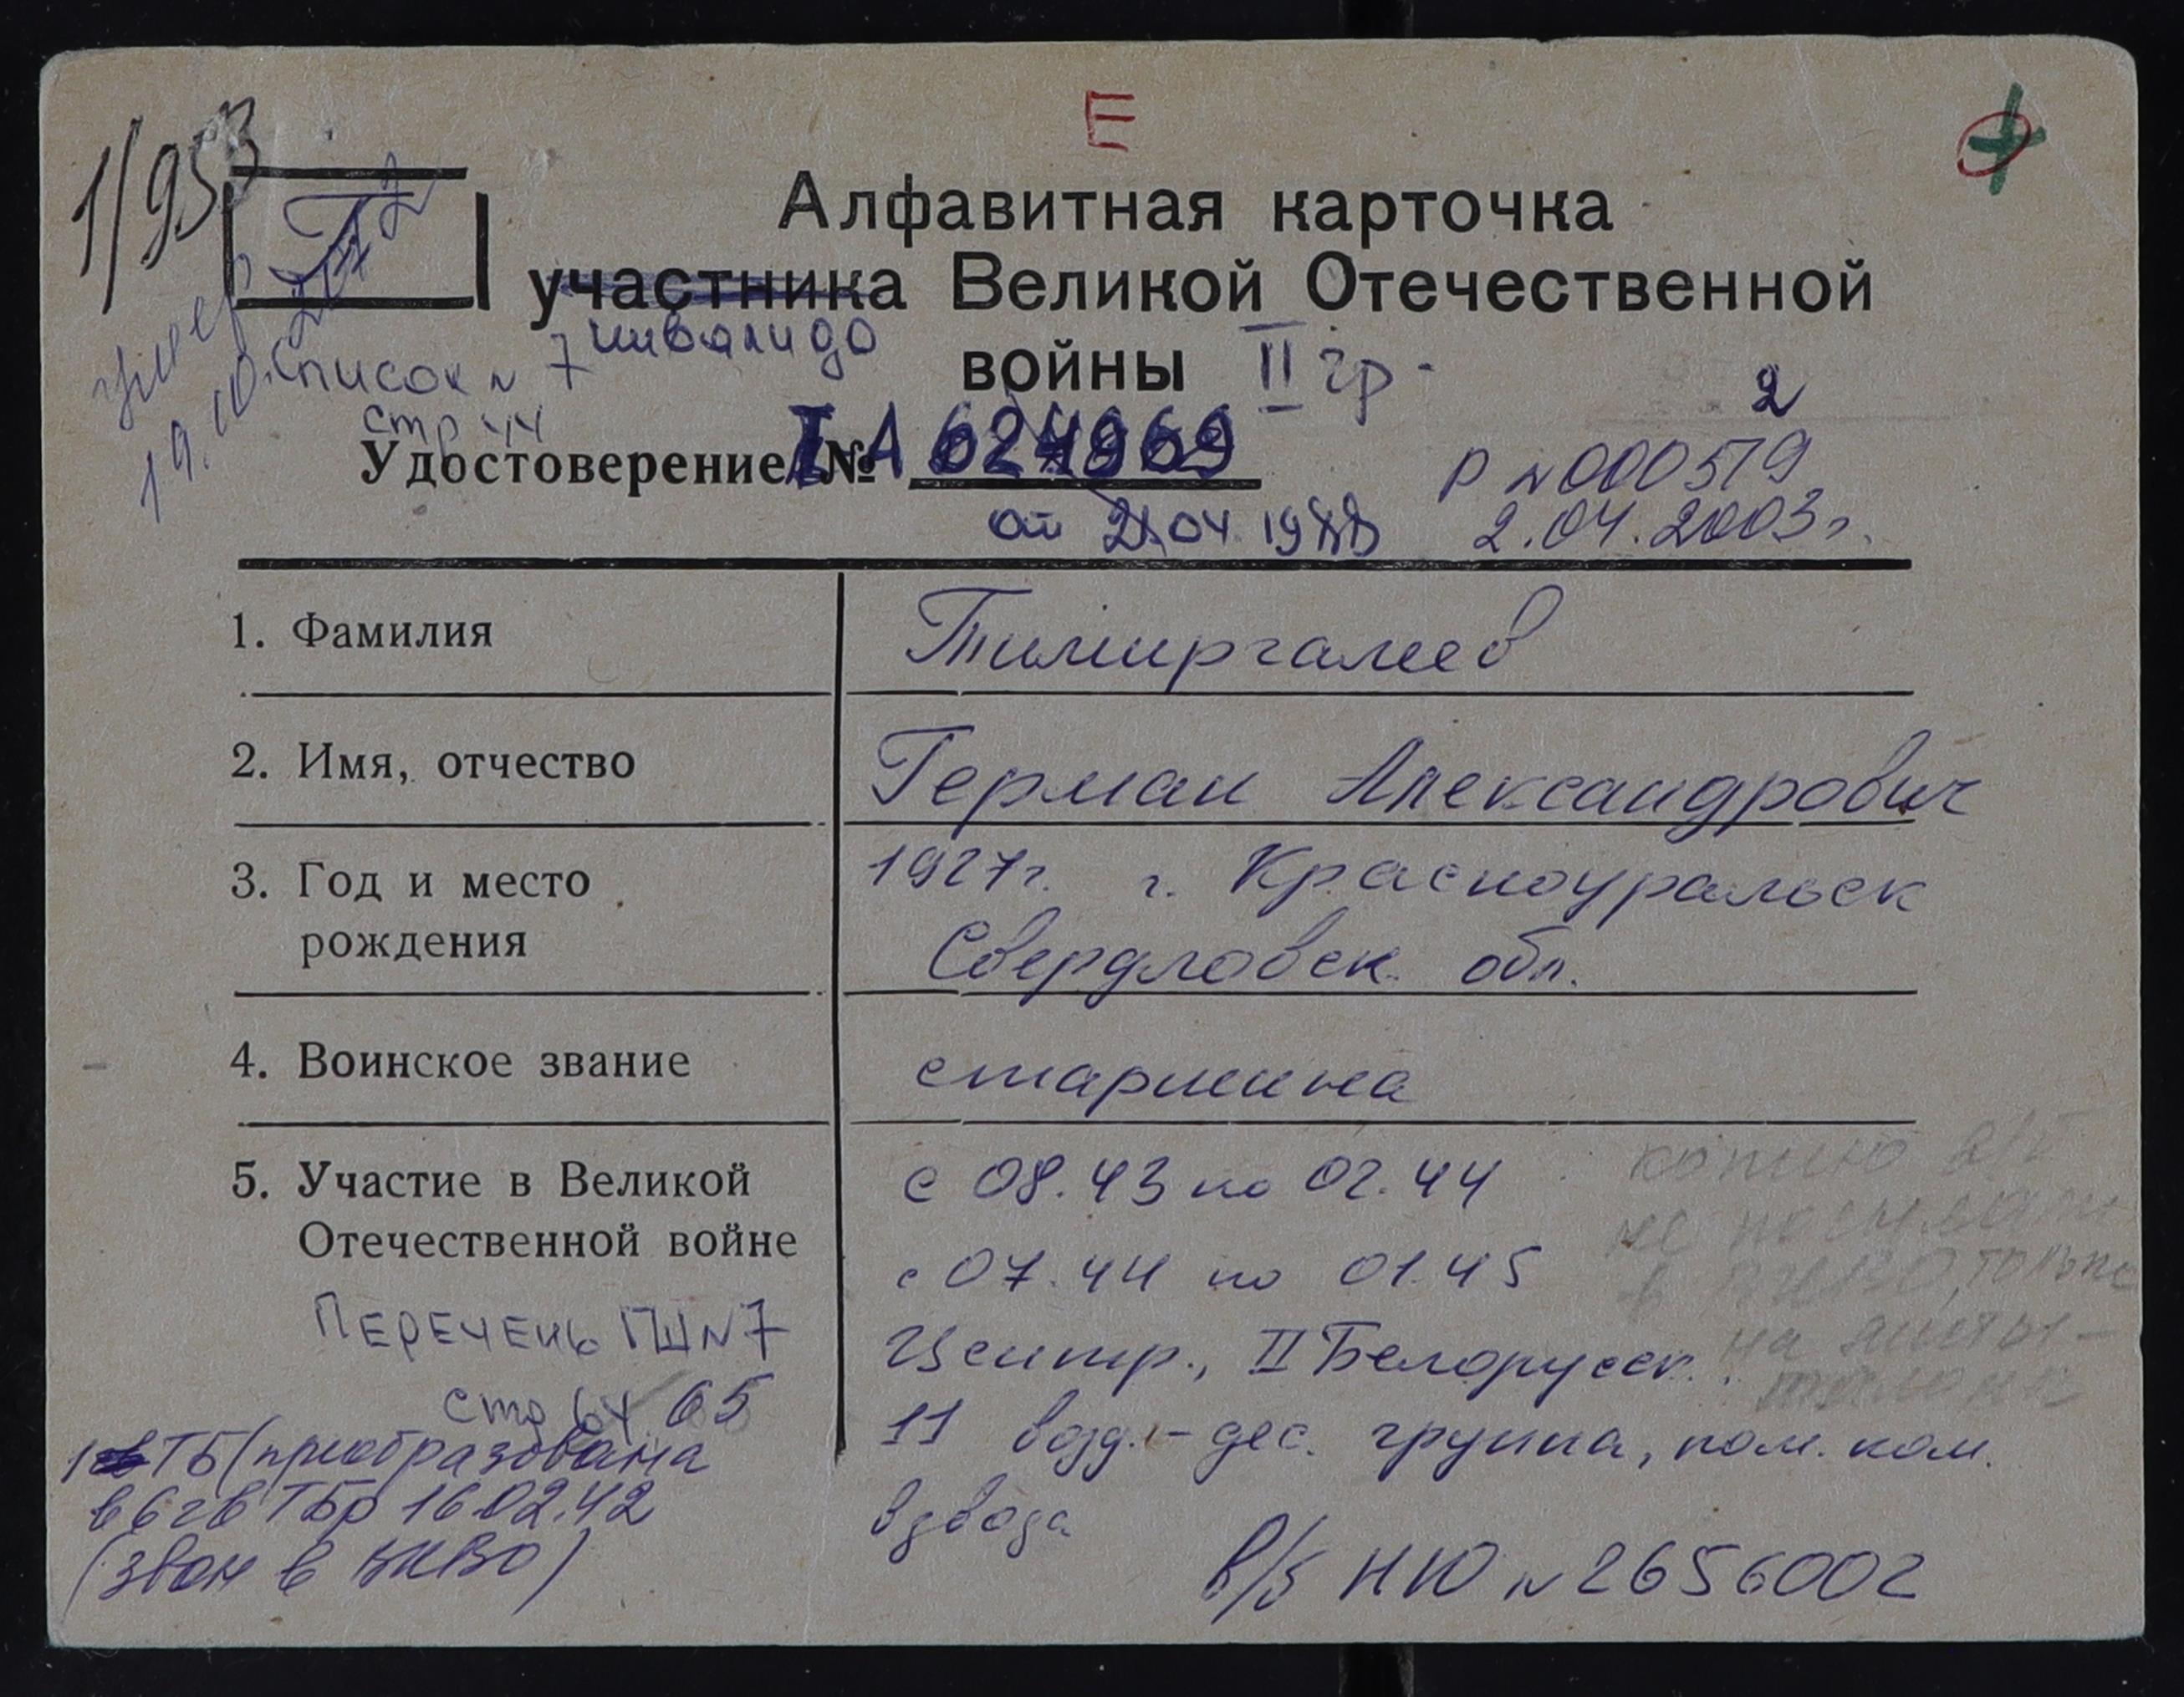 Е
1/953
Алфавитная карточка
участника Великой Отечественной
инвалида
войны II гр.
умер
19.10.
Список N 7
стр 44
2
Удостоверение № 624969
Р N 000579
от 21.04.1988
2.04.2003г.
1. Фамилия Тимиргалеев
2. Имя, отчество Герман Александрович
3. Год и место 1927г. г. Красноуральск
рождения Свердловск. обл.
4. Воинское звание старшина
5. Участие в Великой с 08.43 по 02.44
Отечественной войне с 07.44 по 01.45
копию
не посылали
в только
на
ПЕРЕЧЕНЬ ГШ N 7
Центр., II Белорусск.
стр 64 65
11 возд.-дес. группа, пом. ком.
взвода
1 ТБ (приобразована
в 6 гв ТБр 16.02.42
(звон в
в/б НЮ N 2656002